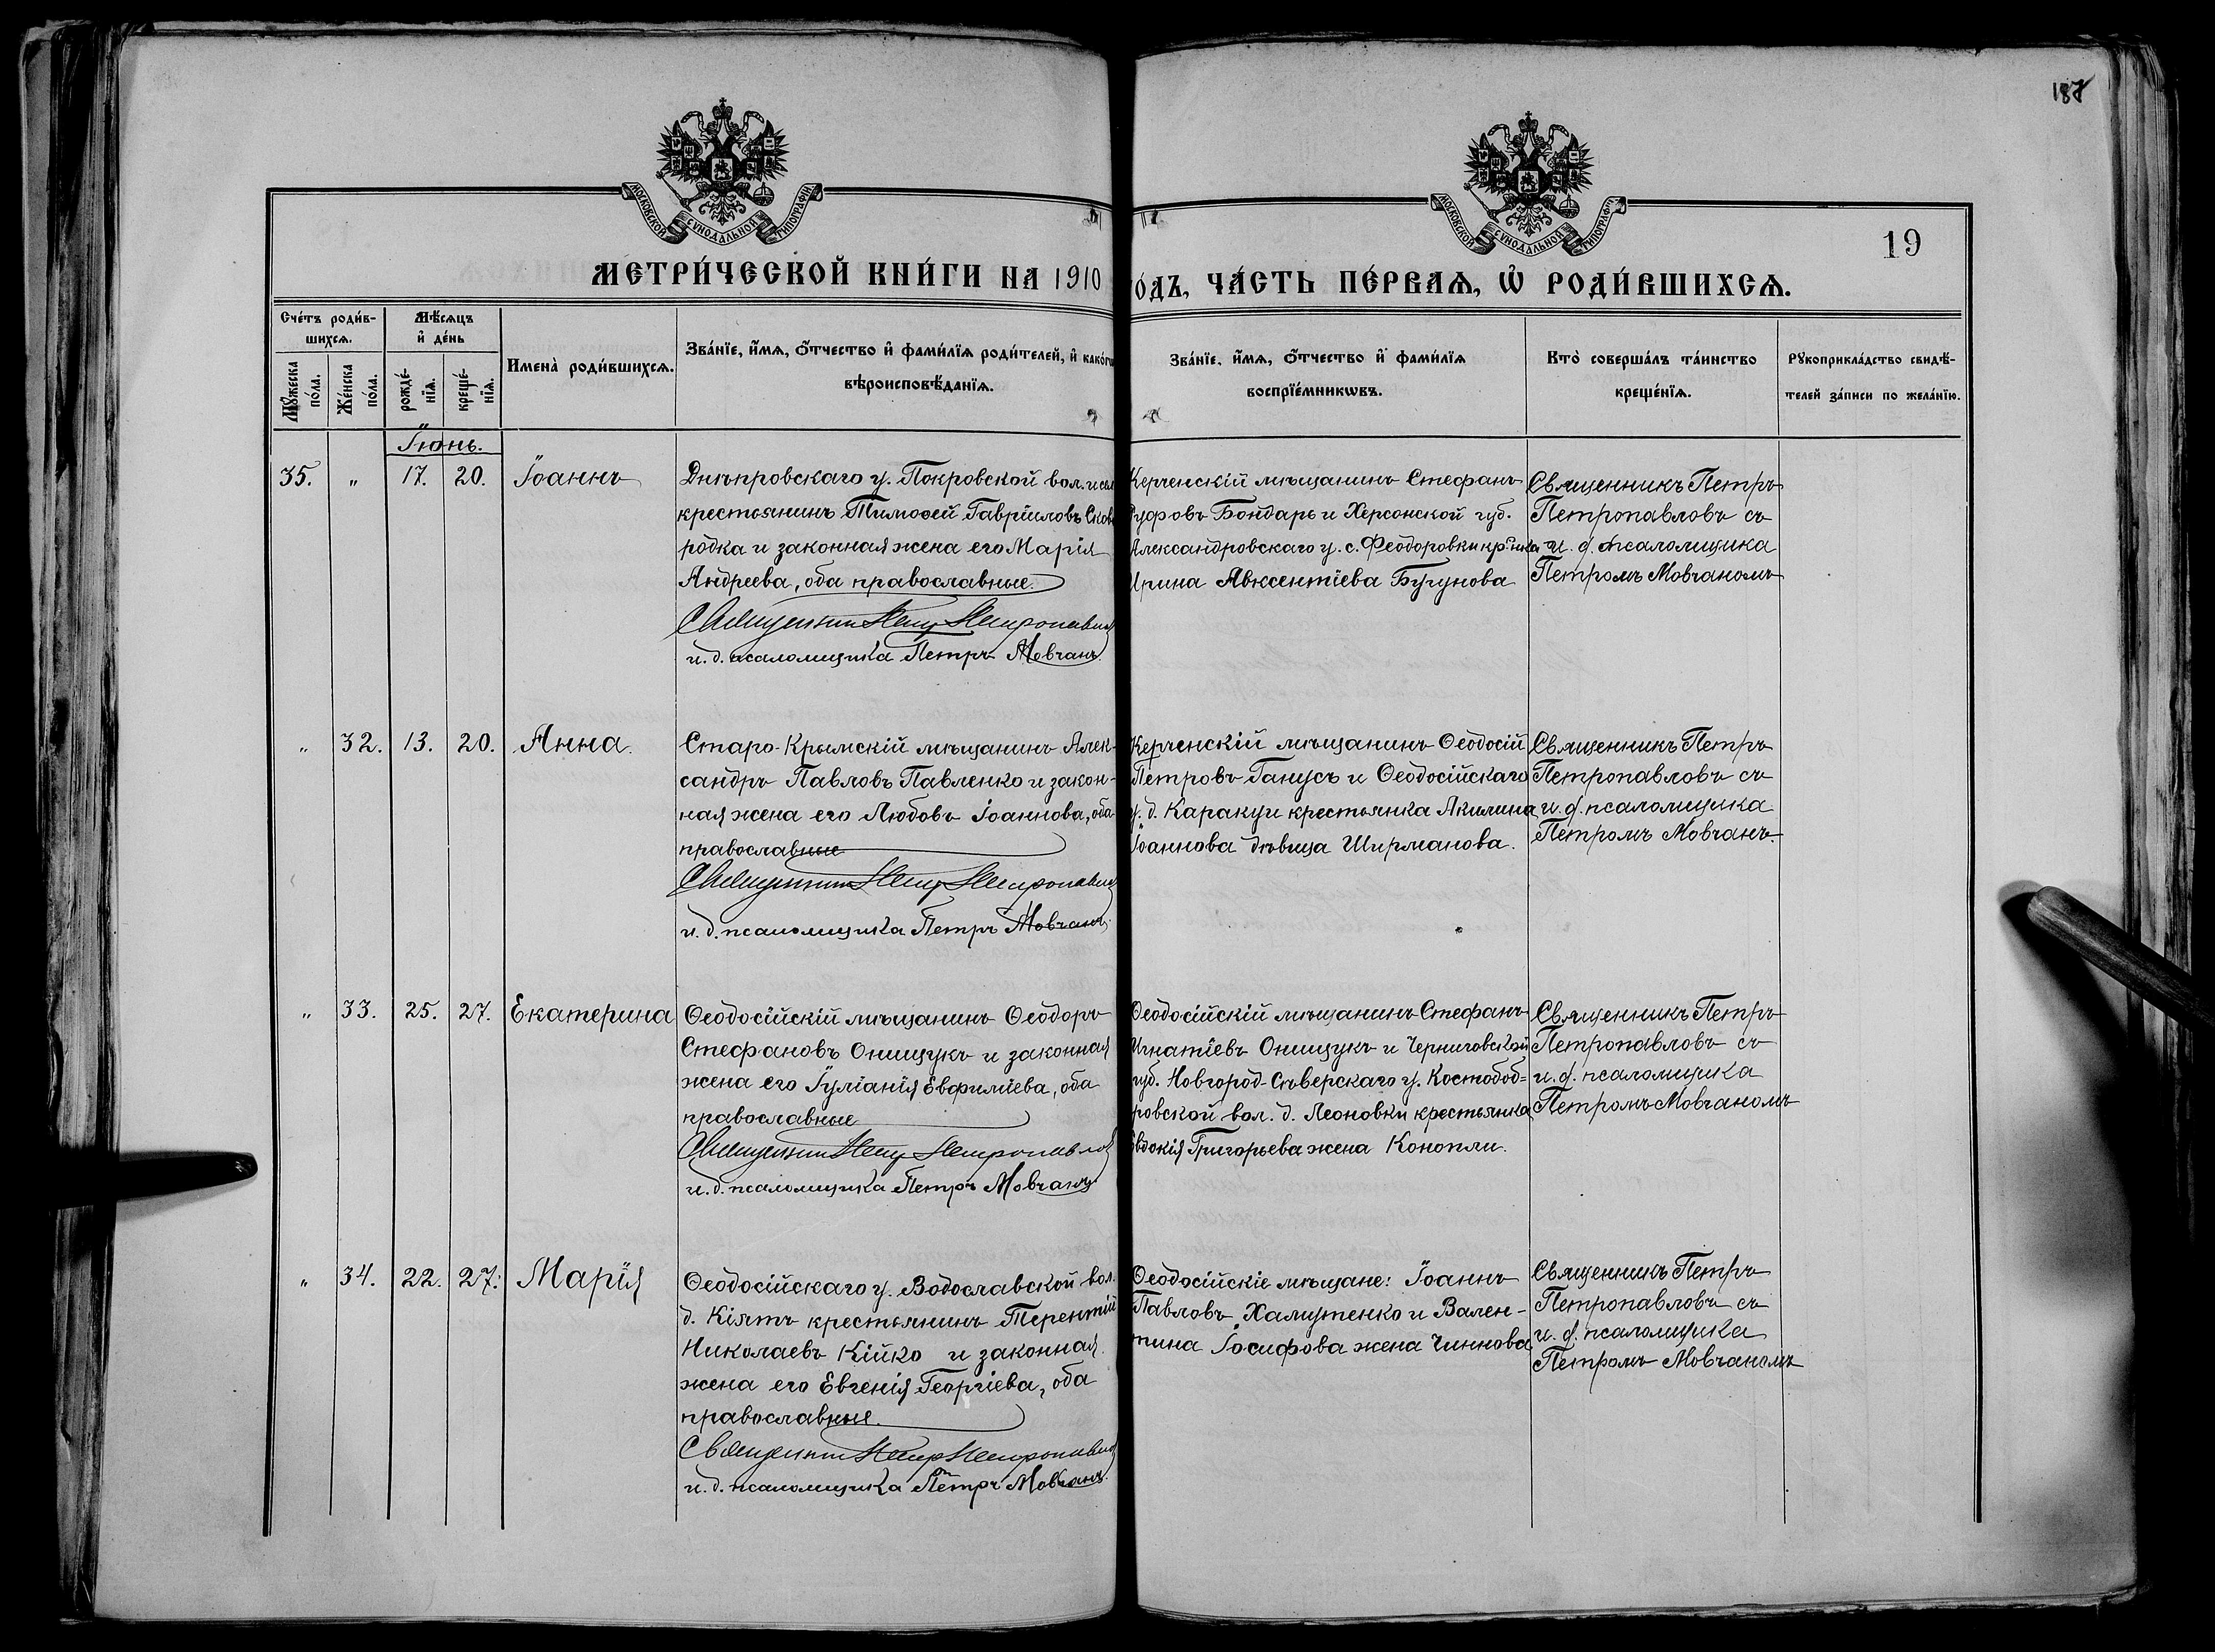 187
МОСКОВСКОЙ СУНОДАЛЬНОЙ ТИПОГРАФІИ
МОСКОВСКОЙ СУНОДАЛЬНОЙ ТИПОГРАФІИ
19
МЕТРИ́ЧЕСКОЙ КНИ́ГИ НА 1910
ОДЪ, ЧА́СТЬ ПЕ́РВАѦ, Ѡ҆ РОДИ́ВШИХСѦ.
Сче́тъ роди́в-
шихсѧ.
Мѣ́сѧцъ
и҆ де́нь
Мꙋжеска по́ла.
Же́нска по́ла.
рожде́-
нїѧ.
креще́-
нїѧ.
Имена̀ роди́вшихсѧ.
Зва́нїе, и҆́мѧ, ѻ҆́тчество и҆ фами́лїѧ роди́телей, и҆ како́гѡ
вѣроисповѣ́данїѧ.
Зва́нїе, и҆́мѧ, ѻ҆́тчество и҆ фами́лїѧ
воспрїе́мникѡвъ.
Кто̀ соверша́лъ та́инство
креще́нїѧ.
Рꙋкоприкла́дство свидѣ́-
телей за́писи по жела́нїю.
Іюнь.
35. „ 17. 20. Іоаннъ
Днѣпровскаго у. Покровской вол. и сел
крестьянинъ Тимоѳей Гавріиловъ Сково
родка и законная жена его Марія
Андреева, оба православные.
Священникъ Петръ Петропавлов
и. д. псаломщика Петръ Мовчанъ.
Керченскій мѣщанинъ Стефанъ
Руфовъ Бондарь и Херсонской губ.
Александровскаго у. с. Феодоровки кр-нка
Ирина Авксентіева Бугунова
Священникъ Петръ
Петропавловъ съ
и. д. псаломщика
Петромъ Мовчаномъ
„ 32. 13. 20. Анна.
Старо-Крымскій мѣщанинъ Алек-
сандръ Павловъ Павленко и закон-
ная жена его Любовь Іоаннова, оба
православные
Священникъ Петръ Петропавлов
и. д. псаломщика Петръ Мовчанъ
Керченскій мѣщанинъ Ѳеодосій
Петровъ Ганусъ и Ѳеодосійскаго
у. д. Каракуи крестьянка Акилина
Іоаннова дѣвица Ширманова.
Священникъ Петръ
Петропавловъ съ
и. д. псаломщика
Петромъ Мовчанъ.
„ 33. 25. 27. Екатерина
Ѳеодосійскій мѣщанинъ Ѳеодоръ
Стефановъ Онищукъ и законная
жена его Іуліанія Евфиміева, оба
православные
Священникъ Петръ Петропавлов
и. д. псаломщика Петръ Мовчанъ
Ѳеодосійскій мѣщанинъ Стефанъ
Игнатіевъ Онищукъ и Черниговской
губ. Новгород-Сѣверскаго у. Костобоб=
ровской вол. д. Леоновки крестьянка
Евдокія Григорьева жена Конопли.
Священникъ Петръ
Петропавловъ съ
и. д. псаломщика
Петромъ Мовчаномъ
„ 34. 22. 27. Марія
Ѳеодосійскаго у. Водославской вол.
д. Кіятъ крестьянинъ Терентій
Николаевъ Кійко и законная
жена его Евгенія Георгіева, оба
православные.
Священникъ Петръ Петропавлов
и. д. псаломщика Петръ Мовчанъ.
Ѳеодосійскіе мѣщане: Іоаннъ
Павловъ Халутенко и Вален-
тина Іосифова жена Чиннова
Священникъ Петръ
Петропавловъ съ
и. д. псаломщика
Петромъ Мовчаномъ